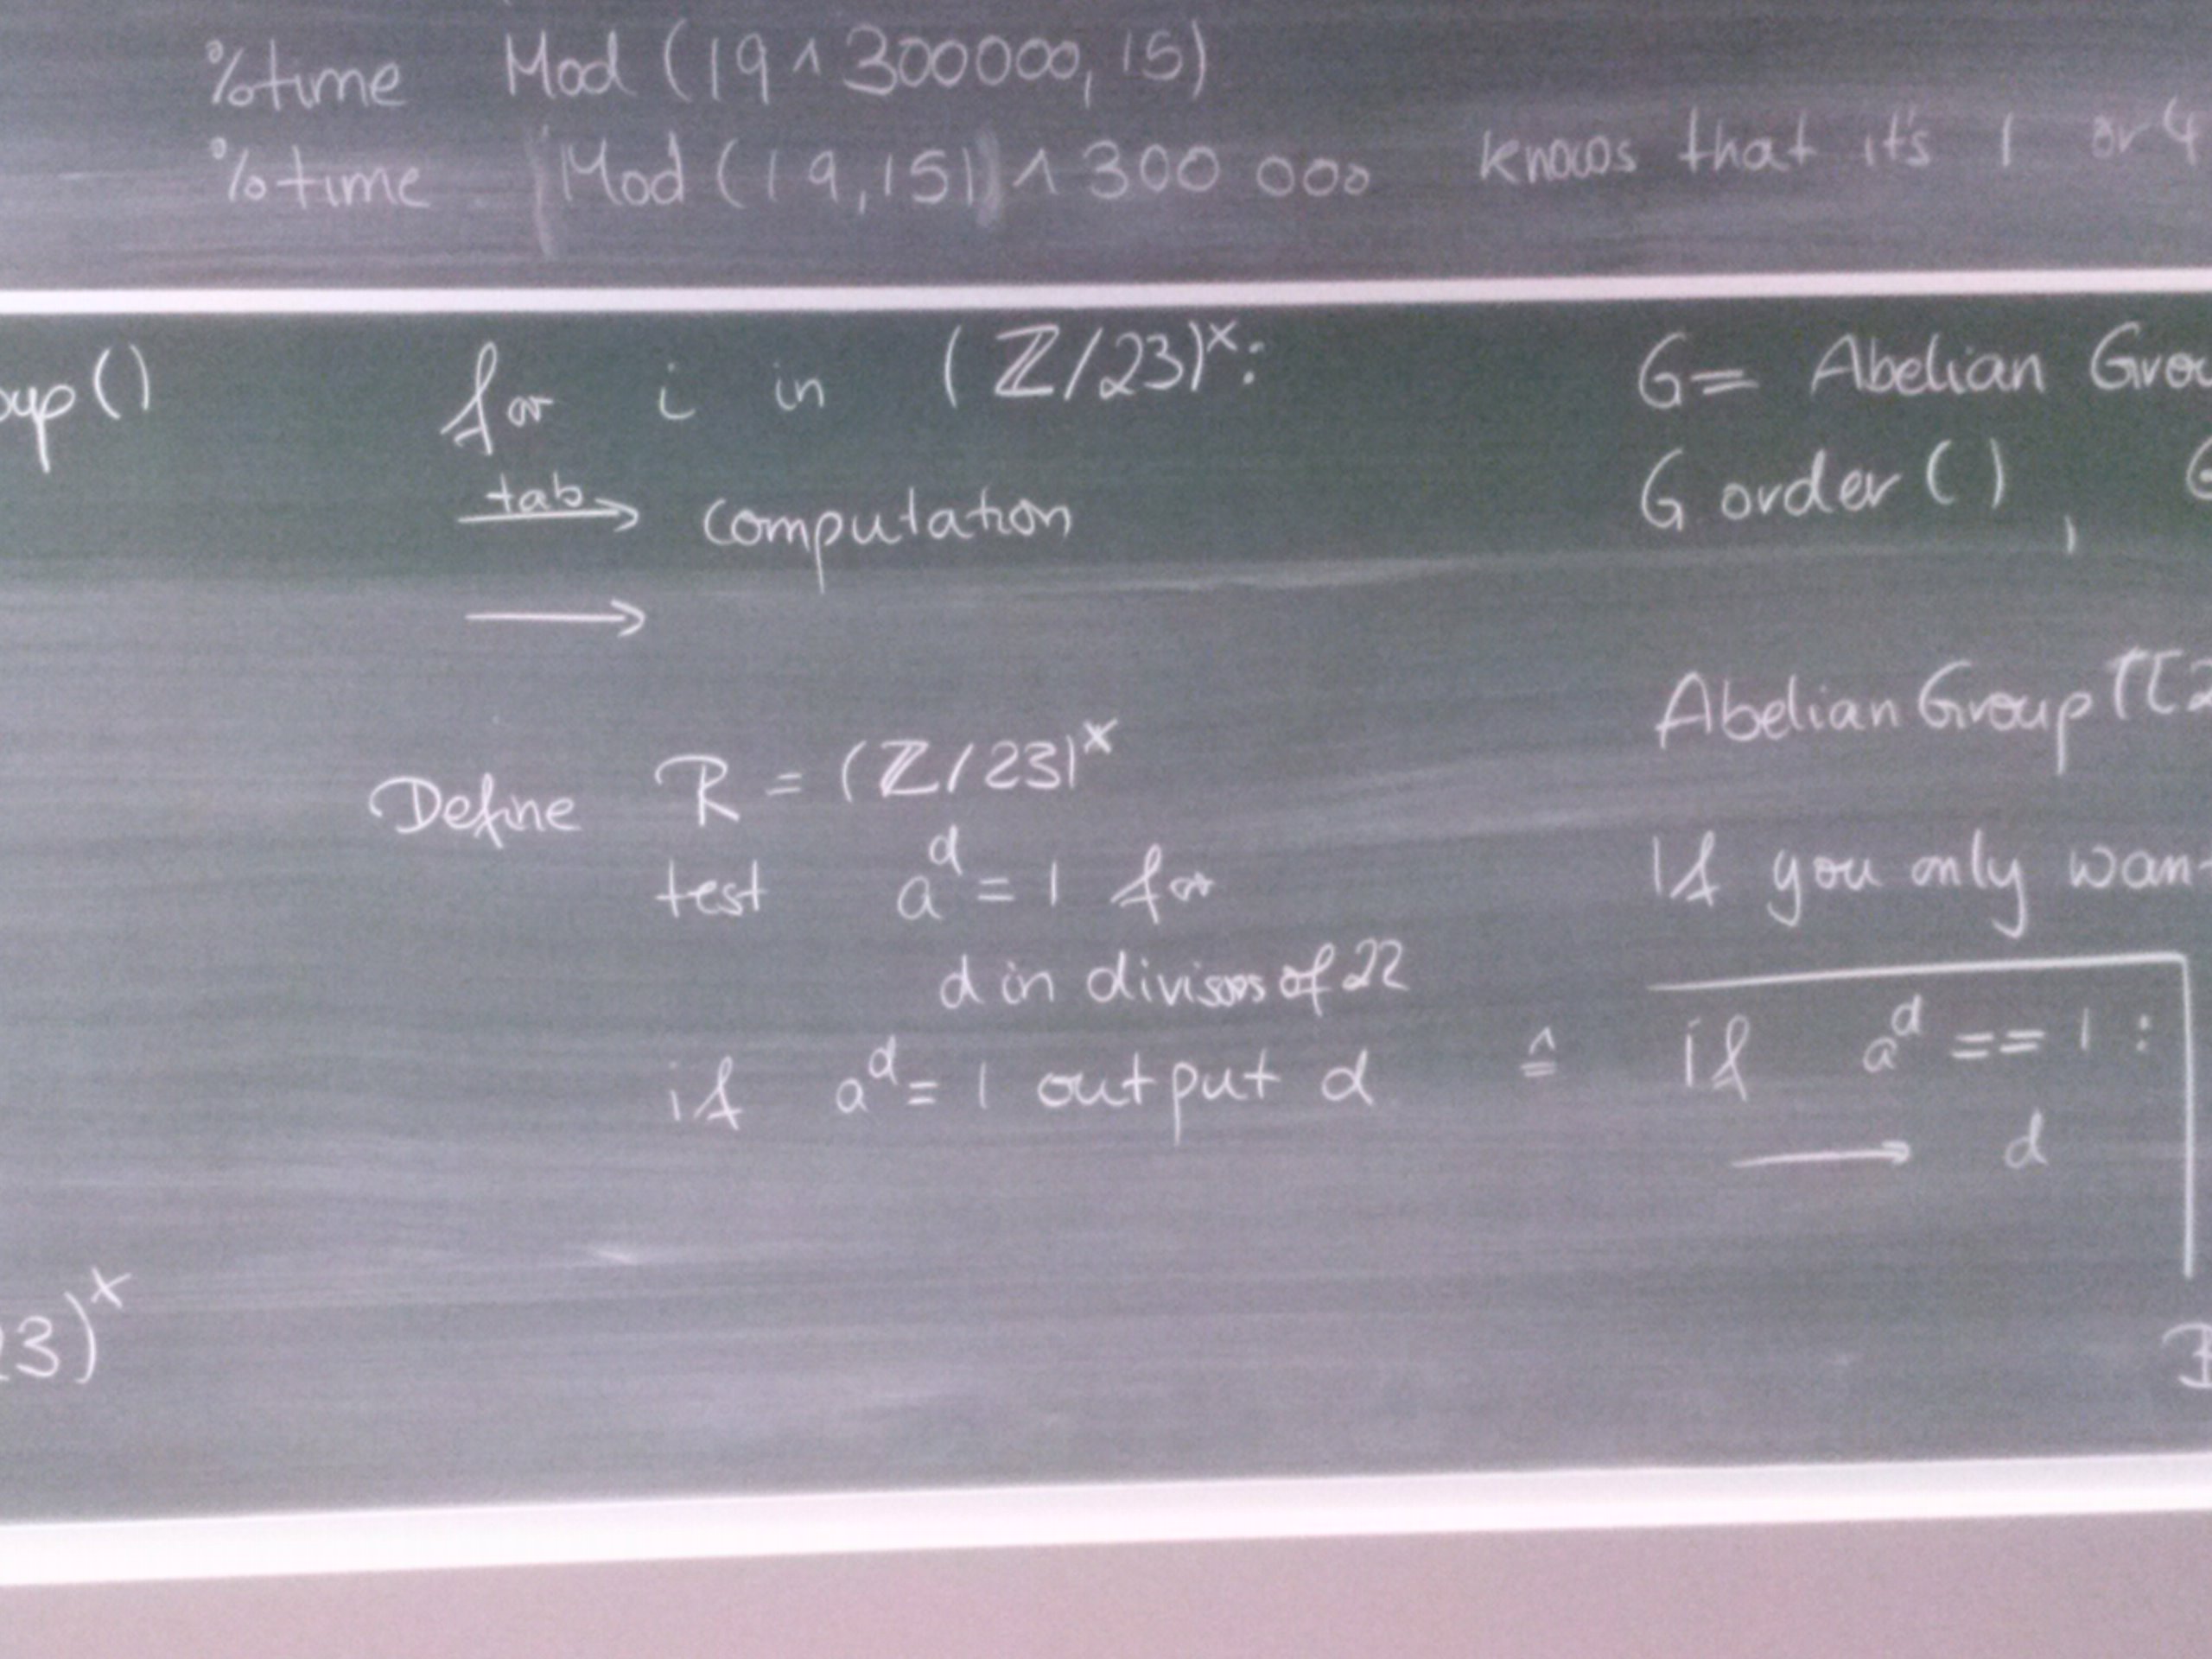 %time Mod (19^300000, 15)
%time Mod (19, 15)^300 000 knows that it's 1 or 4
oup()
for i in (ℤ/23)ˣ:
tab→ computation
→
Define R = (ℤ/23)ˣ
test aᵈ = 1 for
d in divisors of 22
if aᵈ = 1 output d ≙
3)ˣ
G = Abelian Grou
G.order() , G
Abelian Group([2
If you only want
if aᵈ == 1 :
→ d